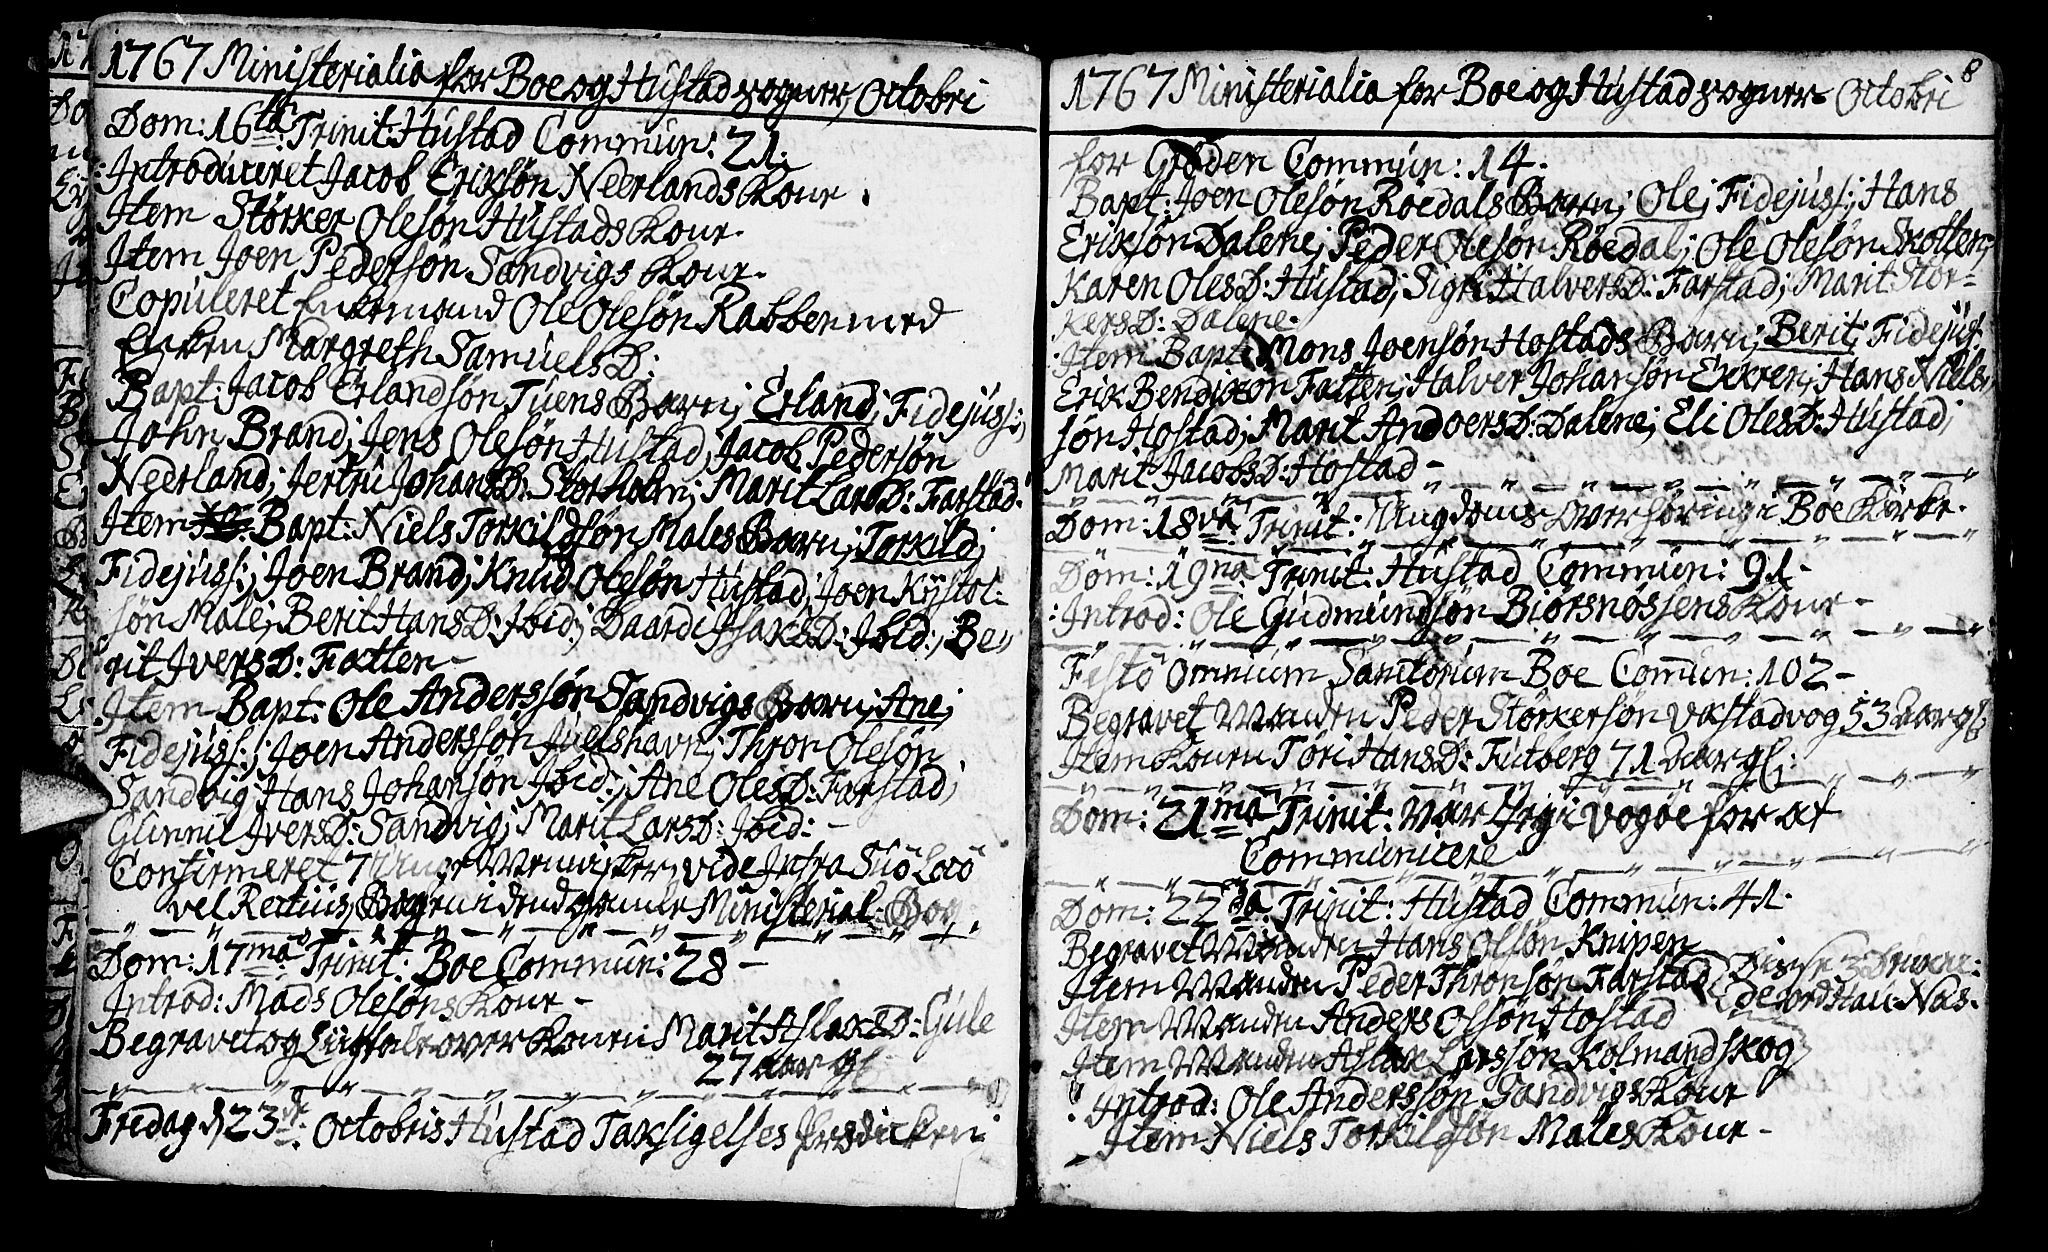 1767 Ministerialia for Boe og Hústad sogner, Octobri
Dom: 16ta Trinit: Hústad Commún: 21.
Introdúceret Jacob Eriksøn Neerlands Kone.
Item Størker Olesøn Hústads Kone.
Item Joen Pedersøn Sandvigs Kone.
Copúleret Enkemand Ole Olesøn Rabben med
Enken Margreth SamúelsD:
Bapt: Jacob Erlandsøn Túens Barn; Erland; Fidejúss:;
John Brand; Jens Olesøn Hústad; Jacob Pedersøn
Neerland; Jertrú JohansD: Storholm; Marit LarsD: Farstad.
Item Bapt: Niels Torkildsøn Males Barn; Torkild;
Fidejúss:; Joen Brand; Knúd Olesøn Hústad; Joen Kystol:
søn Male; Berit HansD: Ibid:; Baardi IsaksD: Ibid:; Be„
rit IversD: Fatten –
Item Bapt: Ole Anderssøn Sandvigs Barn; Ane;
Fidejúss:; Joen Anderssøn Júelshavn; Thron Olesøn
Sandvig; Hans Johansøn Ibid:; Ane OlesD: Farstad;
Gúnnil IversD: Sandvig; Marit LarsD: Ibid: –
Confirmeret 7 Únge Mennisker, vide Infra Súo Loco
vel Rectiús Bagen i dend gamle Ministerial-Bog
Dom: 17ma Trinit: Boe Commún: 28 –
Introd: Mads Olesøns Kone –
Begravet og Liigtale over Konen Marit AslaksD: Gúle
27 Aar gl.
Fredag d 23de Octobris Hústad Taksigelses Prædicken
8
1767 Ministerialia for Boe og Hústad sogner Octobri
for Grøden Commún: 14.
Bapt: Joen Olesøn Røedals Barn; Ole; Fidejúss:; Hans
Eriksøn Dalene; Peder Olesøn Røedal; Ole Olesøn Skotten;
Karen OlesD: Hústad; Sigri HalversD: Farstad; Marit Stør-
kersD: Dalene.
Item Bapt: Mons Joensøn Hostads Barn; Berit; Fidejúss:
Erik Bendixon Fatten; Halver Johansøn Eckren; Hans Niels„
søn Hostad; Marit AndoersD: Dalene; Eli OlesD: Hústad;
Marit JacobsD: Hostad –
Dom: 18va Trinit: Úngdoms Overhøring i Boe Kirke.
Dom: 19na Trinit: Hústad Commún: 91.
Introd: Ole Gúdmúndsøn Biørsnøssens Kone –
Festo Omniúm Sanctorúm Boe Común: 102 –
Begravet Manden Peder Størkersøn Vastadvog 53 Aar gl:
Item Konen Tøri HansD: Fútberg 71 Aar gl:
Dom: 21ma Trinit: Var Jeg i Vogøe for at
Commúnicere
Dom: 22da Trinit: Hústad Commún: 41.
Begravet Manden Hans Olsøn Knipen
Item Manden Peder Thronsøn Farstad
Disse 3 Drúkne-
de ved Staú-Næs.
Item Manden Anders Olsøn Hostad
Item Manden Aslak Larssøn Kolmandskog
Introd: Ole Anderssøn Sandvigs Kone
Item Niels Torkildsøn Males Kone –